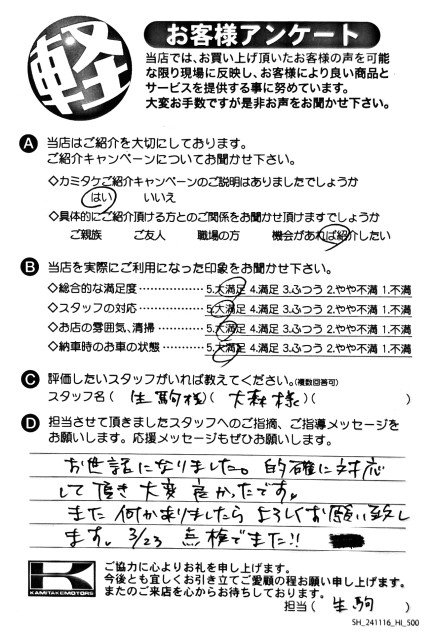 軽
お客様アンケート
当店では、お買い上げ頂いたお客様の声を可能
な限り現場に反映し、お客様により良い商品と
サービスを提供する事に努めています。
大変お手数ですが是非お声をお聞かせ下さい。
A 当店はご紹介を大切にしております。
ご紹介キャンペーンについてお聞かせ下さい。
◇カミタケご紹介キャンペーンのご説明はありましたでしょうか
はい いいえ
◇具体的にご紹介頂ける方とのご関係をお聞かせ頂けますでしょうか
ご親族 ご友人 職場の方 機会があれば紹介したい
B 当店を実際にご利用になった印象をお聞かせ下さい。
◇総合的な満足度……………5.大満足 4.満足 3.ふつう 2.やや不満 1.不満
◇スタッフの対応……………5.大満足 4.満足 3.ふつう 2.やや不満 1.不満
◇お店の雰囲気、清掃…………5.大満足 4.満足 3.ふつう 2.やや不満 1.不満
◇納車時のお車の状態…………5.大満足 4.満足 3.ふつう 2.やや不満 1.不満
C 評価したいスタッフがいれば教えてください。(複数回答可)
スタッフ名(生駒様)(大森様)( )
D 担当させて頂きましたスタッフへのご指摘、ご指導メッセージを
お願いします。応援メッセージもぜひお願いします。
お世話になりました。的確に対応
して頂き大変良かったです。
また何か有りましたらよろしくお願い致し
ます。3/23 点検でまた!!
KAMITAKEMOTORS
ご協力に心よりお礼を申し上げます。
今後とも宜しくお引き立てご愛顧の程お願い申し上げます。
またのご来店を心からお待ちしております。
担当(生駒)
SH_241116_HI_500